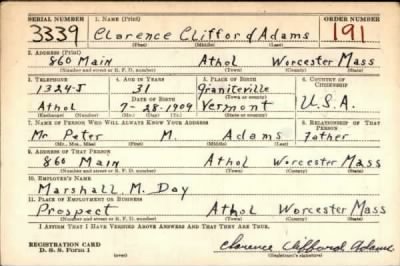 SERIAL NUMBER 1. NAME (Print) ORDER NUMBER
3339 Clarence Clifford Adams 191
(First) (Middle) (Last)
2. ADDRESS (Print)
860 Main Athol Worcester Mass
(Number and street or R. F. D. number) (Town) (County) (State)
3. TELEPHONE 4. AGE IN YEARS 5. PLACE OF BIRTH 6. COUNTRY OF CITIZENSHIP
1324-J 31 Graniteville
(Town or county)
Athol DATE OF BIRTH 7-28-1909 Vermont U.S.A.
(Exchange) (Number) (Mo.) (Day) (Yr.) (State or country)
7. NAME OF PERSON WHO WILL ALWAYS KNOW YOUR ADDRESS 8. RELATIONSHIP OF THAT PERSON
Mr Peter M. Adams Father
(Mr., Mrs., Miss) (First) (Middle) (Last)
9. ADDRESS OF THAT PERSON
860 Main Athol Worcester Mass
(Number and street or R. F. D. number) (Town) (County) (State)
10. EMPLOYER'S NAME
Marshall M. Day
11. PLACE OF EMPLOYMENT OR BUSINESS
Prospect Athol Worcester Mass
(Number and street or R. F. D. number) (Town) (County) (State)
I AFFIRM THAT I HAVE VERIFIED ABOVE ANSWERS AND THAT THEY ARE TRUE.
REGISTRATION CARD
D. S. S. Form 1 (over) Clarence Clifford Adams
(Registrant's signature)